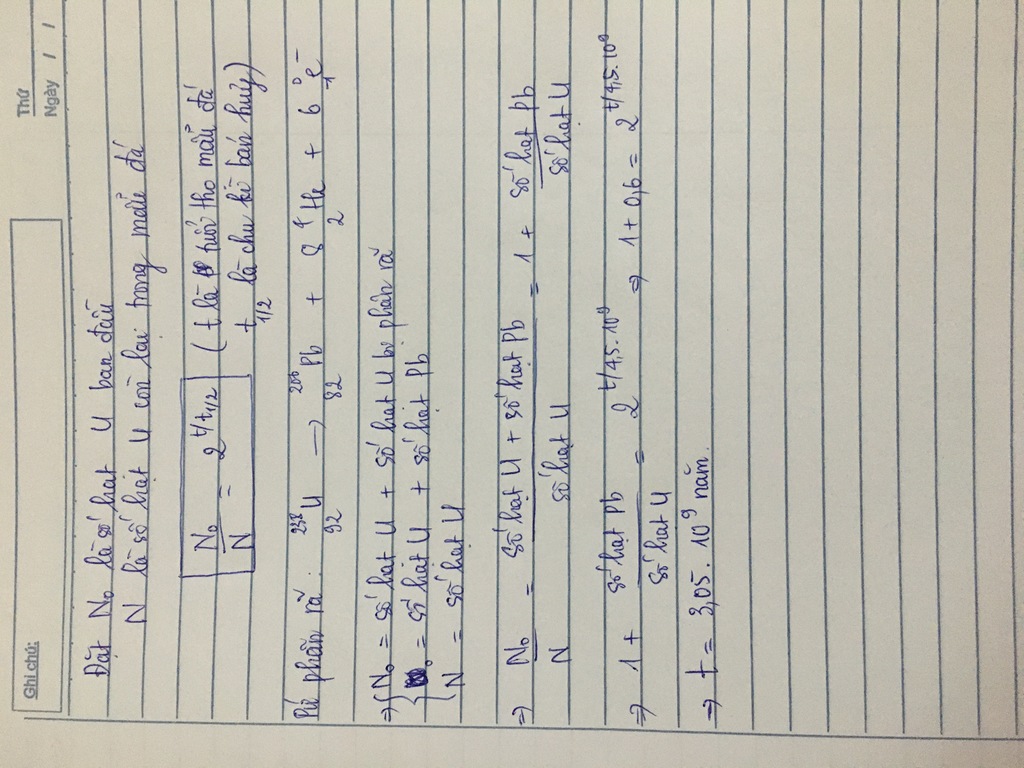 Ghi chú:
Thứ
Ngày / /
Đặt N₀ là số hạt U ban đầu
N là số hạt U còn lại trong mẫu đá
N₀/N = 2^(t/t1/2) ( t là tuổi thọ mẫu đá
t1/2 là chu kì bán huỷ)
Pứ phân rã : ²³⁸₉₂U → ²⁰⁶₈₂Pb + 8 ⁴₂He + 6 ⁰₋₁e⁻
⇒ { N₀ = số hạt U + số hạt U bị phân rã
N₀ = số hạt U + số hạt Pb
N = số hạt U
⇒ N₀/N = (số hạt U + số hạt Pb)/(số hạt U) = 1 + (số hạt Pb)/(số hạt U)
⇒ 1 + (số hạt Pb)/(số hạt U) = 2^(t/4,5.10⁹) ⇒ 1 + 0,6 = 2^(t/4,5.10⁹)
⇒ t = 3,05.10⁹ năm.